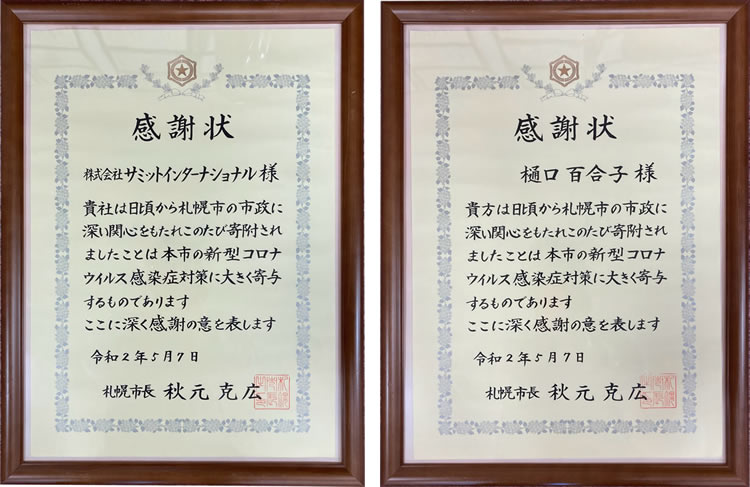 感謝状
株式会社サミットインターナショナル 様
貴社は日頃から札幌市の市政に
深い関心をもたれこのたび寄附され
ましたことは本市の新型コロナ
ウイルス感染症対策に大きく寄与
するものであります
ここに深く感謝の意を表します
令和2年5月7日
札幌市長 秋元克広
感謝状
樋口百合子様
貴方は日頃から札幌市の市政に
深い関心をもたれこのたび寄附され
ましたことは本市の新型コロナ
ウイルス感染症対策に大きく寄与
するものであります
ここに深く感謝の意を表します
令和2年5月7日
札幌市長 秋元克広